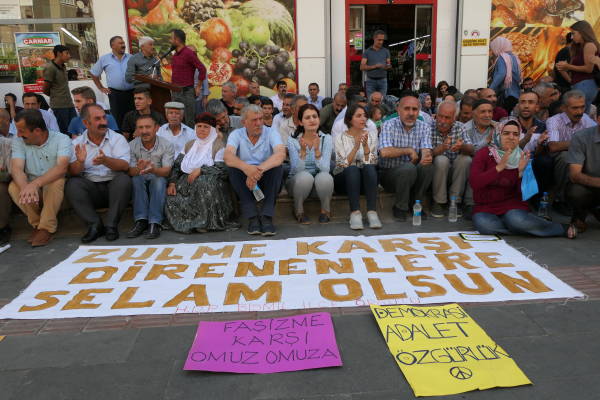 ÇARMAR
ZULME KARŞI
DİRENENLERE
SELAM OLSUN
FAŞİZME
KARŞI
OMUZ OMUZA
DEMOKRASİ
ADALET
ÖZGÜRLÜK